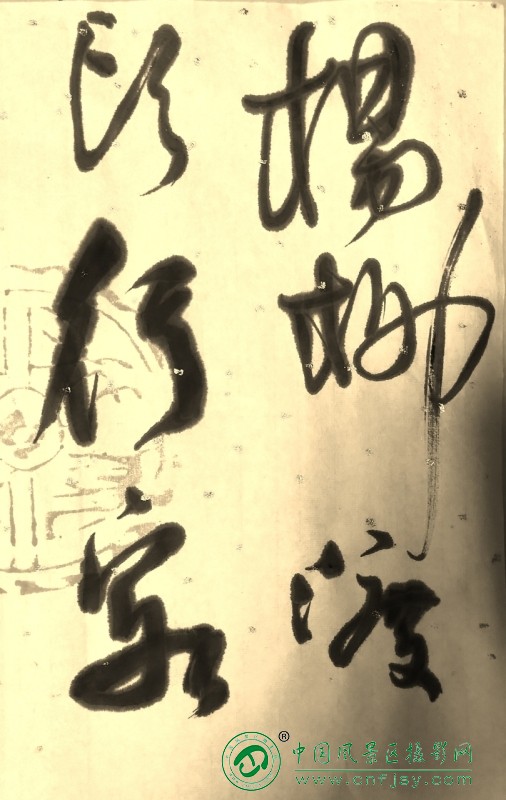 楊柳渡
頭行客
®
中国风景区摄影网
www.cnfjsy.com